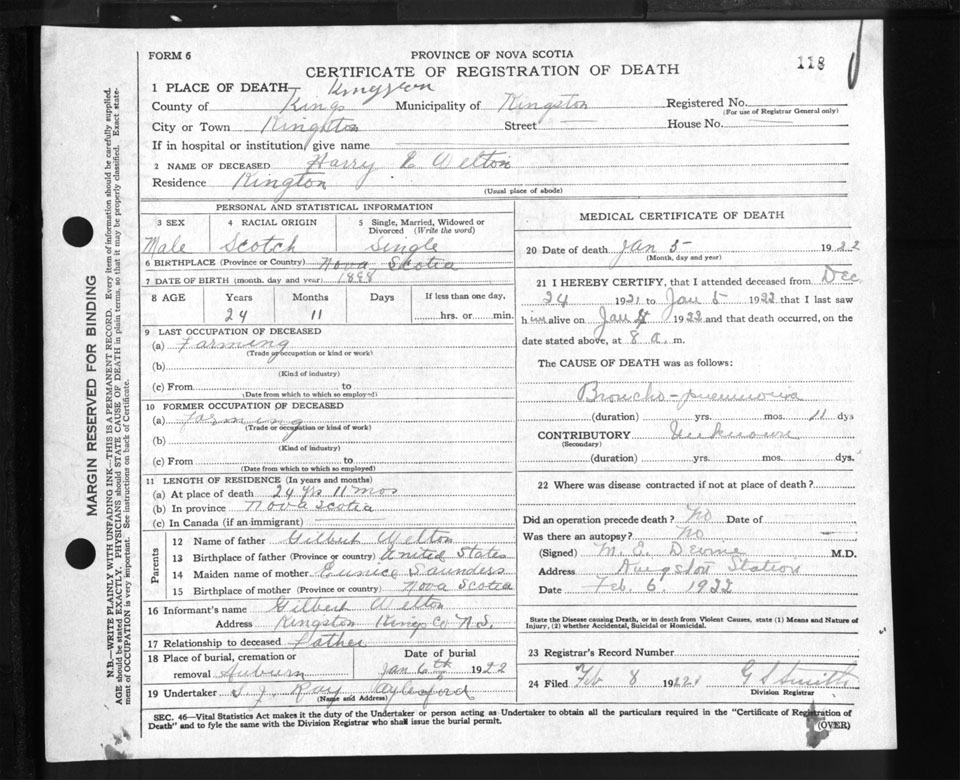 FORM 6
PROVINCE OF NOVA SCOTIA
CERTIFICATE OF REGISTRATION OF DEATH
118
1 PLACE OF DEATH— Kingston
County of Kings Municipality of Kingston Registered No.
(For use of Registrar General only)
City or Town Kingston Street — House No. —
If in hospital or institution, give name
2 NAME OF DECEASED Harry E Welton
Residence Kington
(Usual place of abode)
PERSONAL AND STATISTICAL INFORMATION
3 SEX 4 RACIAL ORIGIN 5 Single, Married, Widowed or Divorced (Write the word)
Male Scotch Single
6 BIRTHPLACE (Province or Country) Nova Scotia
7 DATE OF BIRTH (month, day and year) 1898
8 AGE Years Months Days If less than one day,
24 11 hrs. or min.
9 LAST OCCUPATION OF DECEASED
(a) Farming
(Trade or occupation or kind or work)
(b)
(Kind of industry)
(c) From to
(Date from which to which so employed)
10 FORMER OCCUPATION OF DECEASED
(a) Farming
(Trade or occupation or kind of work)
(b)
(Kind of industry)
(c) From to
(Date from which to which so employed)
11 LENGTH OF RESIDENCE (In years and months)
(a) At place of death 24 Yrs 11 mos
(b) In province Nova Scotia
(c) In Canada (if an immigrant) —
Parents
12 Name of father Gilbert Welton
13 Birthplace of father (Province or country) United States
14 Maiden name of mother Eunice Saunders
15 Birthplace of mother (Province or country) Nova Scotia
16 Informant's name Gilbert Welton
Address Kingston Kings Co N.S.
17 Relationship to deceased Father
18 Place of burial, cremation or removal Auburn
Date of burial Jan 6th 1922
19 Undertaker S. J. Ray Aylesford
(Name and Address)
MEDICAL CERTIFICATE OF DEATH
20 Date of death Jan 5 1922
(Month, day and year)
21 I HEREBY CERTIFY, that I attended deceased from Dec
24 1921 to Jan 5 1922 that I last saw
him alive on Jan 4 1922 and that death occurred, on the
date stated above, at 8 a. m.
The CAUSE OF DEATH was as follows:
Broncho-pneumonia
(duration) yrs. mos. 11 dys
CONTRIBUTORY Unknown
(Secondary)
(duration) yrs. mos. dys.
22 Where was disease contracted if not at place of death?
Did an operation precede death? No Date of
Was there an autopsy? No —
(Signed) M. C. Devine M.D.
Address Kingston Station
Date Feb. 6. 1922
State the Disease causing Death, or in death from Violent Causes, state (1) Means and Nature of Injury, (2) whether Accidental, Suicidal or Homicidal.
23 Registrar's Record Number
24 Filed Feb 8 1922 G S Smith
Division Registrar
SEC. 46—Vital Statistics Act makes it the duty of the Undertaker or person acting as Undertaker to obtain all the particulars required in the "Certificate of Registration of
Death" and to fyle the same with the Division Registrar who shall issue the burial permit.
(OVER)
MARGIN RESERVED FOR BINDING
N.B.—WRITE PLAINLY WITH UNFADING INK—THIS IS A PERMANENT RECORD. Every item of information should be carefully supplied.
AGE should be stated EXACTLY. PHYSICIANS should STATE CAUSE OF DEATH in plain terms, so that it may be properly classified. Exact statement
of OCCUPATION is very important. See instructions on back of Certificate.